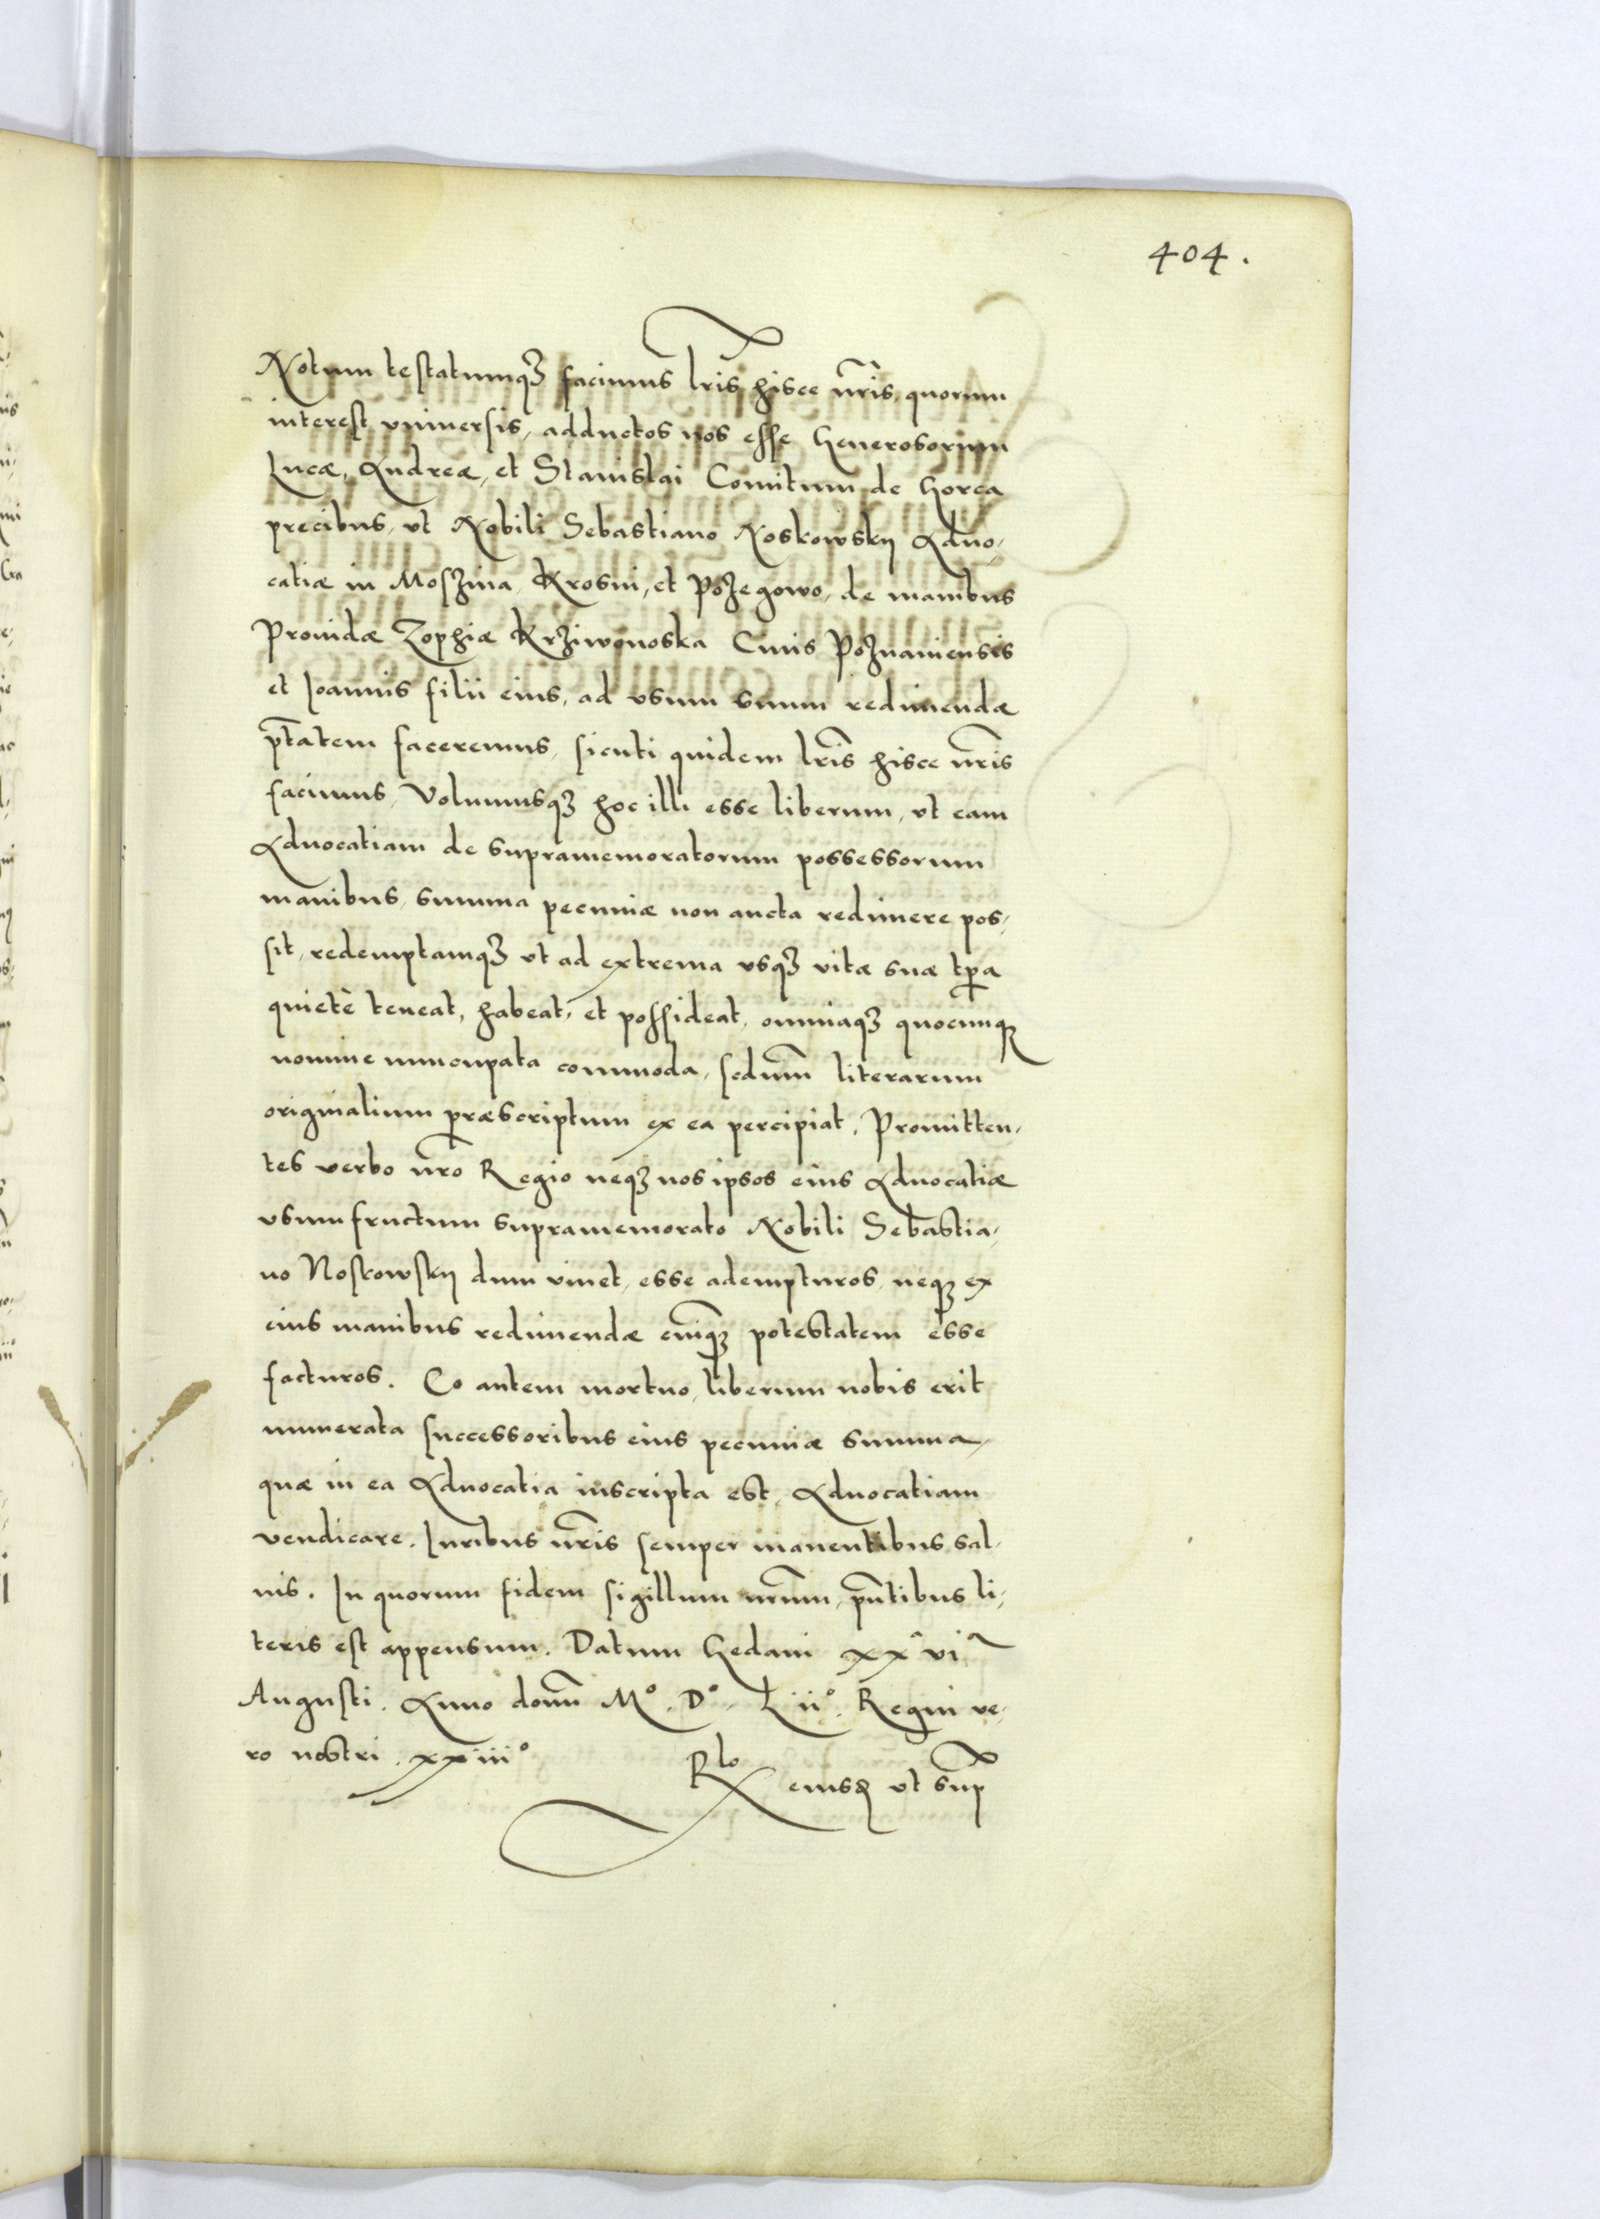 404.
Notum testatumq₃ facimus lr̃is hisce nr̃is, quorum
interest vniuersis, adductos nos esse Generosorum
Lucæ, Andreæ, et Stanislai Comitum de Gorca
precibus, vt Nobili Sebastiano Noskowskij Aduo,
catiæ in Moszina, Krosni, et Pozegowo, de manibus
Prouidæ Zophiæ Krziwonoska Ciuis Poznaniensis
et Joannis filii eius, ad vsum suum redimendæ
ptãtem faceremus, sicuti quidem lr̃is hisce nr̃is
facimus, Volumusq₃ hoc illi esse liberum, vt eam
Aduocatiam de supramemoratorum possessorum
manibus, summa pecuniæ non aucta redimere pos,
sit, redemptamq₃ vt ad extrema vsq₃ vitæ suæ tp̃a
quietè teneat, habeat, et possideat, omniaq₃ quocunq₃
nomine nuncupata commoda, scdum̃ literarum
originalium præscriptum ex ea percipiat. Promitten,
tes verbo nr̃o Regio neq₃ nos ipsos eius Aduocatiæ
vsumfructum supramemorato Nobili Sebastia,
no Noskowskij dum viuet, esse adempturos, neq₃ ex
eius manibus redimendæ cuiq̃₃ potestatem esse
facturos. Eo autem mortuo, liberum nobis erit
numerata successoribus eius pecuniæ summa,
quæ in ea Aduocatia inscripta est, Aduocatiam
vendicare. Iuribus nr̃is semper manentibus sal,
uis. In quorum fidem sigillum nrũm, pñtibus li,
teris est appensum. Datum Gedani xxvi<sup>a</sup>
Augusti. Anno domĩ M°. D°. Lii°. Regni ve,
ro nostri. xxiii°
R<sup>lo</sup> eiusd vt sup̃